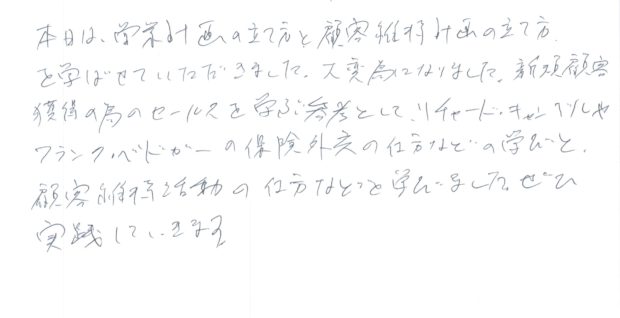 本日は、営業計画の立て方と顧客維持計画の立て方
を学ばせていただきました。大変為になりました。新規顧客
獲得の為のセールスを学ぶ参考として、リチャード・キャンベルや
フランク・ベドガーの保険外交の仕方などの学びと、
顧客維持活動の仕方などを学びました。ぜひ
実践していきます